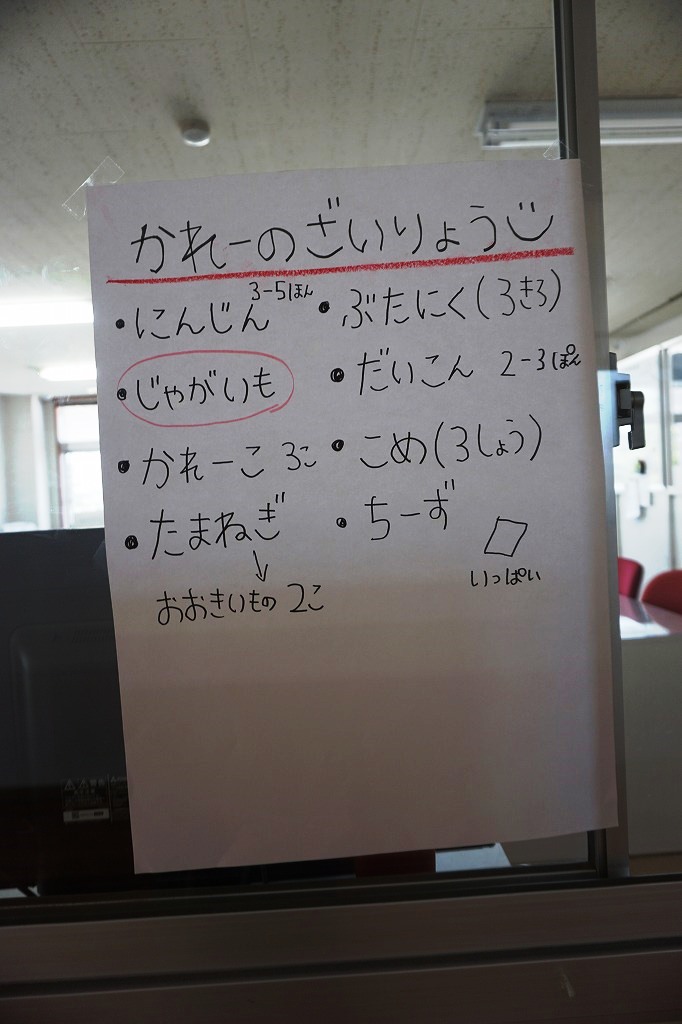 かれーのざいりょう
・にんじん 3-5ほん
・じゃがいも
・かれーこ 3こ
・たまねぎ
↓
おおきいもの 2こ
・ぶたにく(3きろ)
・だいこん 2-3ぽん
・こめ(3しょう)
・ちーず
いっぱい